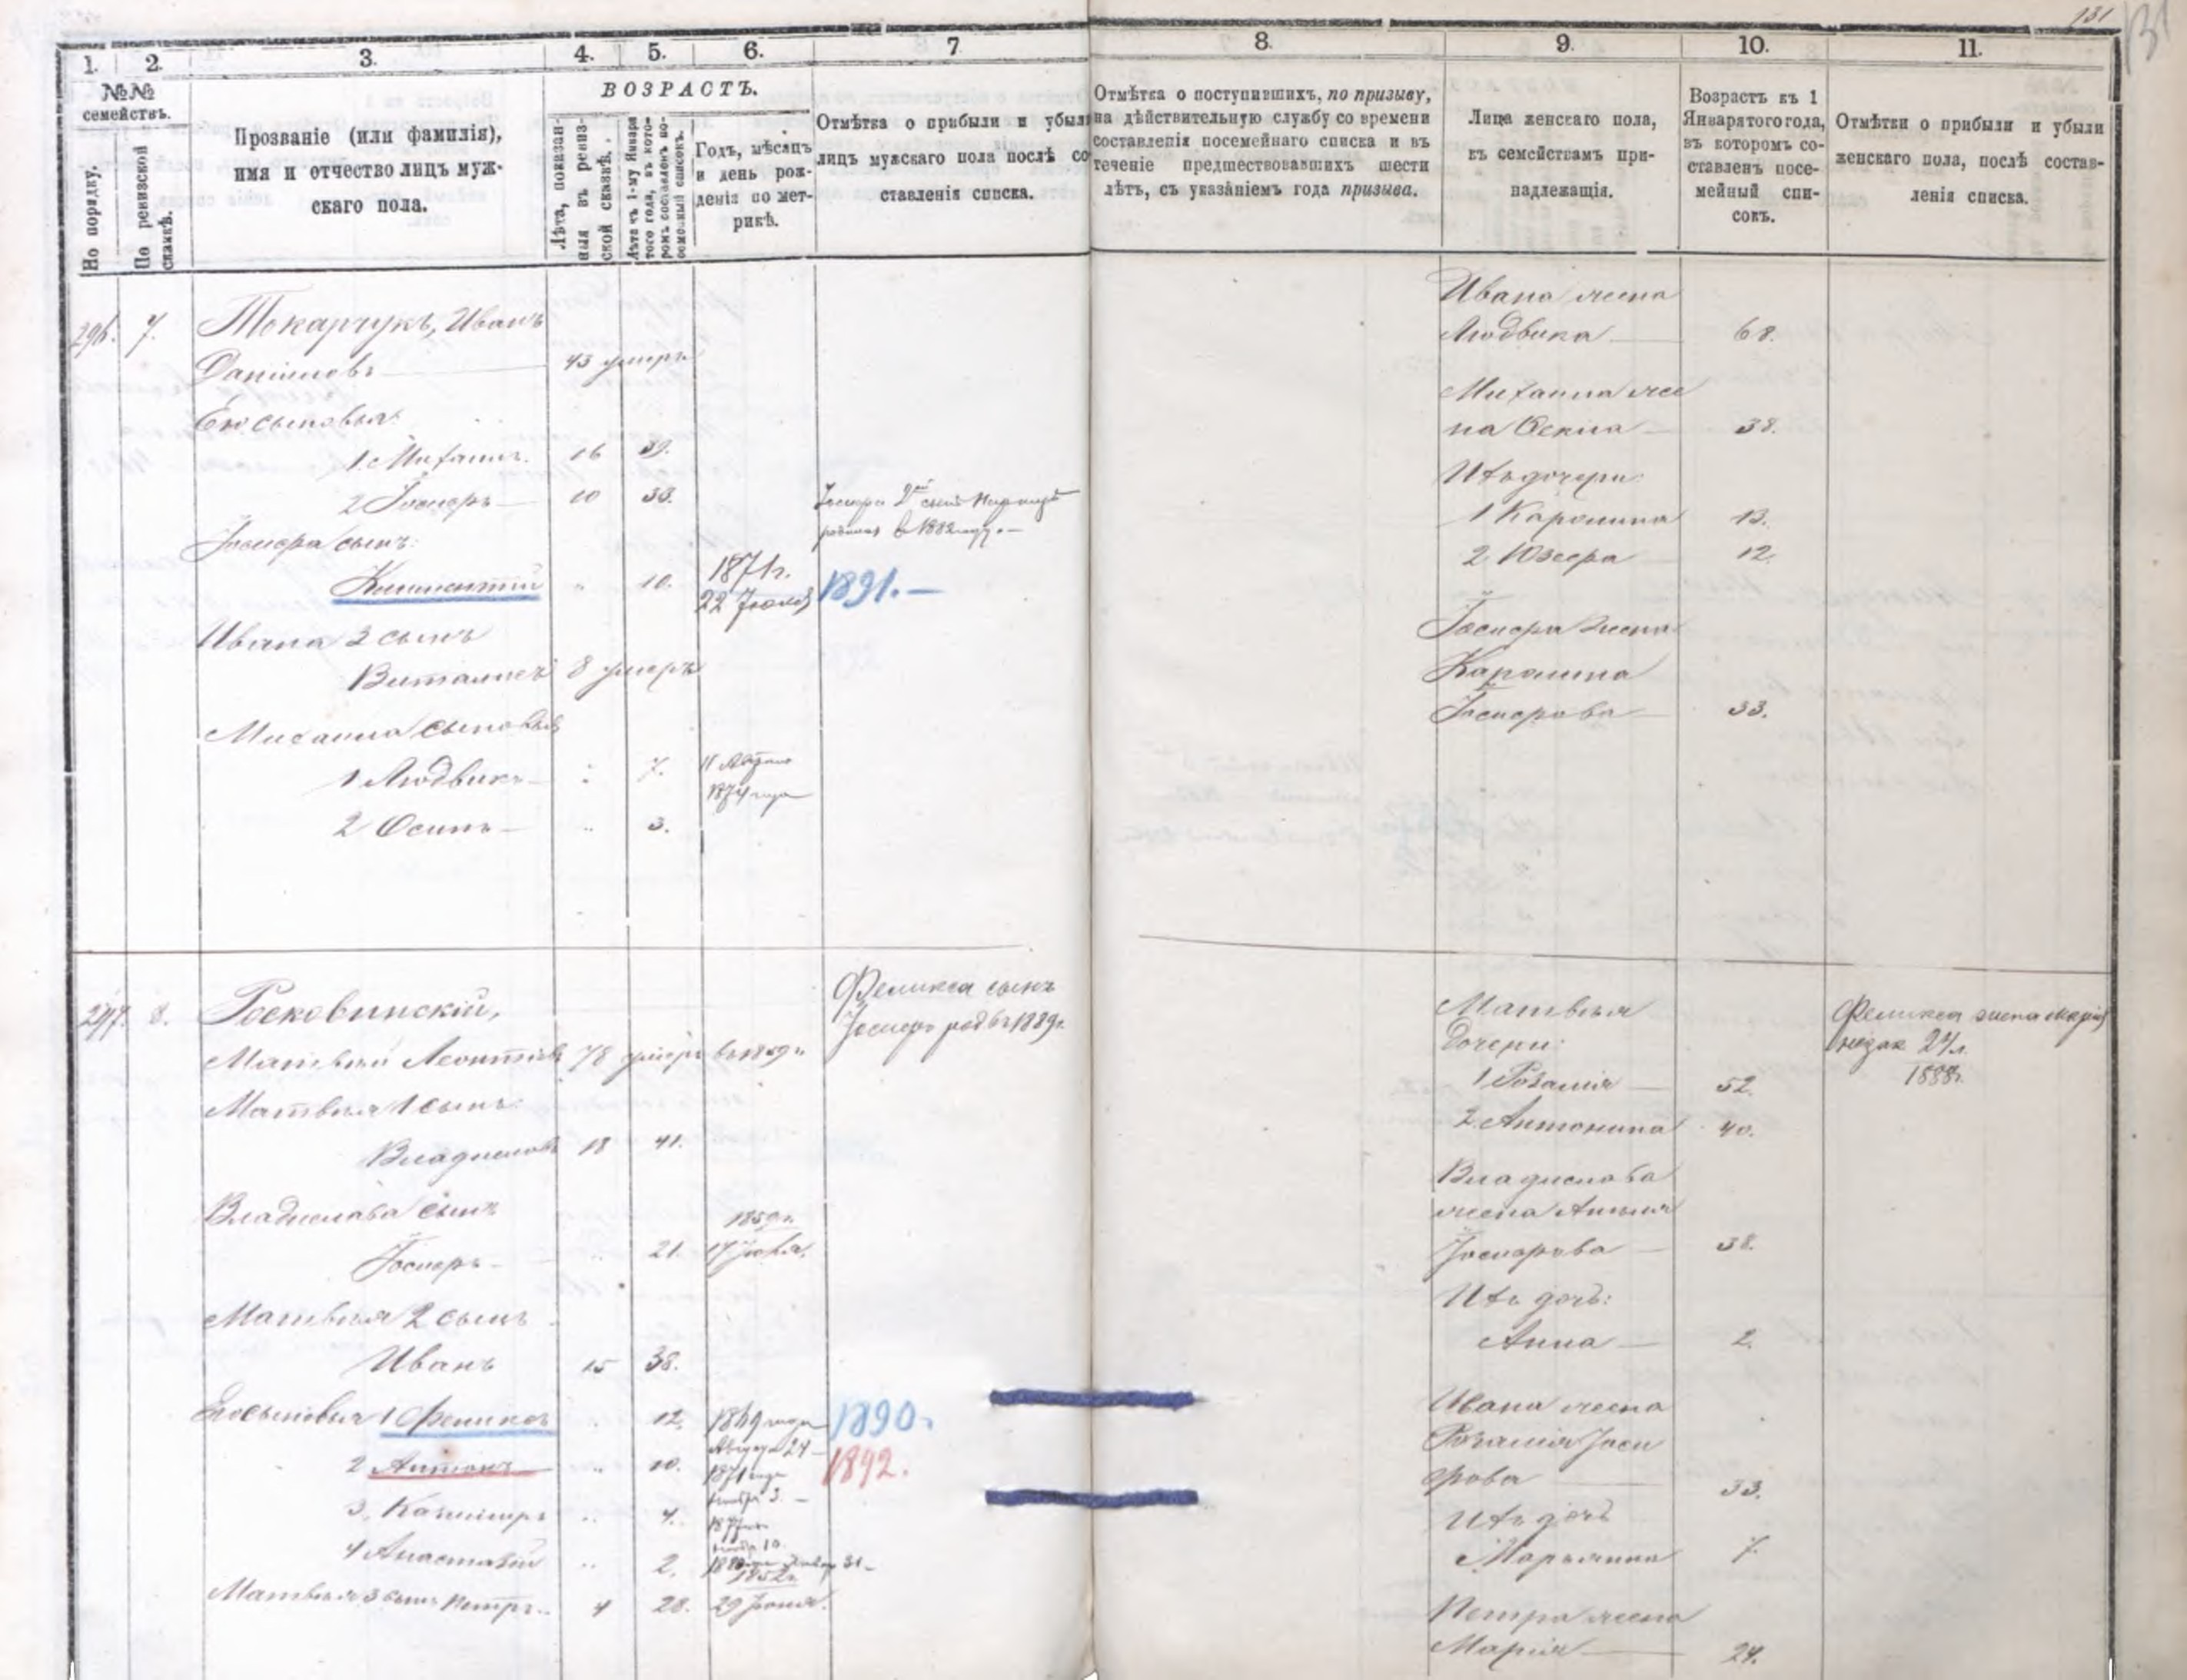 131
131
1.
2.
3.
4.
5.
6.
7
8.
9.
10.
11.
№№ семействъ.
По порядку.
По ревизской сказкѣ.
Прозваніе (или фамилія),
имя и отчество лицъ муж-
скаго пола.
ВОЗРАСТЪ.
Лѣта, показан-
ныя въ ревиз-
ской сказкѣ.
Лѣта къ 1-му Января
того года, въ кото-
ромъ составленъ по-
семейный списокъ.
Годъ, мѣсяцъ
и день рож-
денія по мет-
рикѣ.
Отмѣтка о прибыли и убыли
лицъ мужскаго пола послѣ со-
ставленія списка.
Отмѣтка о поступившихъ, по призыву,
на дѣйствительную службу со времени
составленія посемейнаго списка и въ
теченіе предшествовавшихъ шести
лѣтъ, съ указаніемъ года призыва.
Лица женскаго пола,
къ семействамъ при-
надлежащія.
Возрастъ къ 1
Января того года,
въ которомъ со-
ставленъ посе-
мейный спи-
сокъ.
Отмѣтки о прибыли и убыли
женскаго пола, послѣ состав-
ленія списка.
296. 7. Токарчукъ, Иванъ
Даніиловъ 43 умеръ
Его сыновья:
1 Михаилъ. 16 39.
2 Іосифъ 10 33.
Іосифа 2й сынъ
родился въ 1882 году.
Іосифа сынъ:
Климентій " 10. 1871г.
22 Іюля 1891.
Ивана 3 сынъ
Виталисъ 8 умеръ
Михаила сыновья
1 Людвикъ " 7. 11
1874 года
2 Осипъ " 3.
Ивана жена
Людвика 68.
Михаила же
на 38.
Ихъ дочери:
1 Каролина 13.
2 Юзефа 12.
Іосифа жена
Каролина
Іосифова 33.
297. 8. Росковинскій,
Матвѣй Леонтіевъ 78 умеръ въ 1859 г.
Феликса сынъ
Іосифъ род. въ 1889г.
Матвѣя 1 сынъ:
Владиславъ 18 41.
Владислава сынъ
Іосифъ " 21. 1859г.
17
Матвѣя 2 сынъ
Иванъ 15 38.
Его сыновья 1 Феликсъ " 12. 1869 года
Августа 24 1890.
2 Антонъ " 10. 1871 года
3. 1892.
3. Казимиръ " 4. 1877
10.
4 Анастазій " 2. 31
Матвѣя 3 сынъ Петръ 4 28. 1852г.
29 Іюня.
Матвѣя
дочери:
1 Розалія 52.
2 Антонина 40.
Владислава
жена
Іосифова 38.
Ихъ дочь:
Анна 2.
Ивана жена
Розалія Іоси
фова 33.
Ихъ дочь
Марьянна 7.
Петра жена
Марія 24.
Феликса жена Марія
24 л.
1888г.